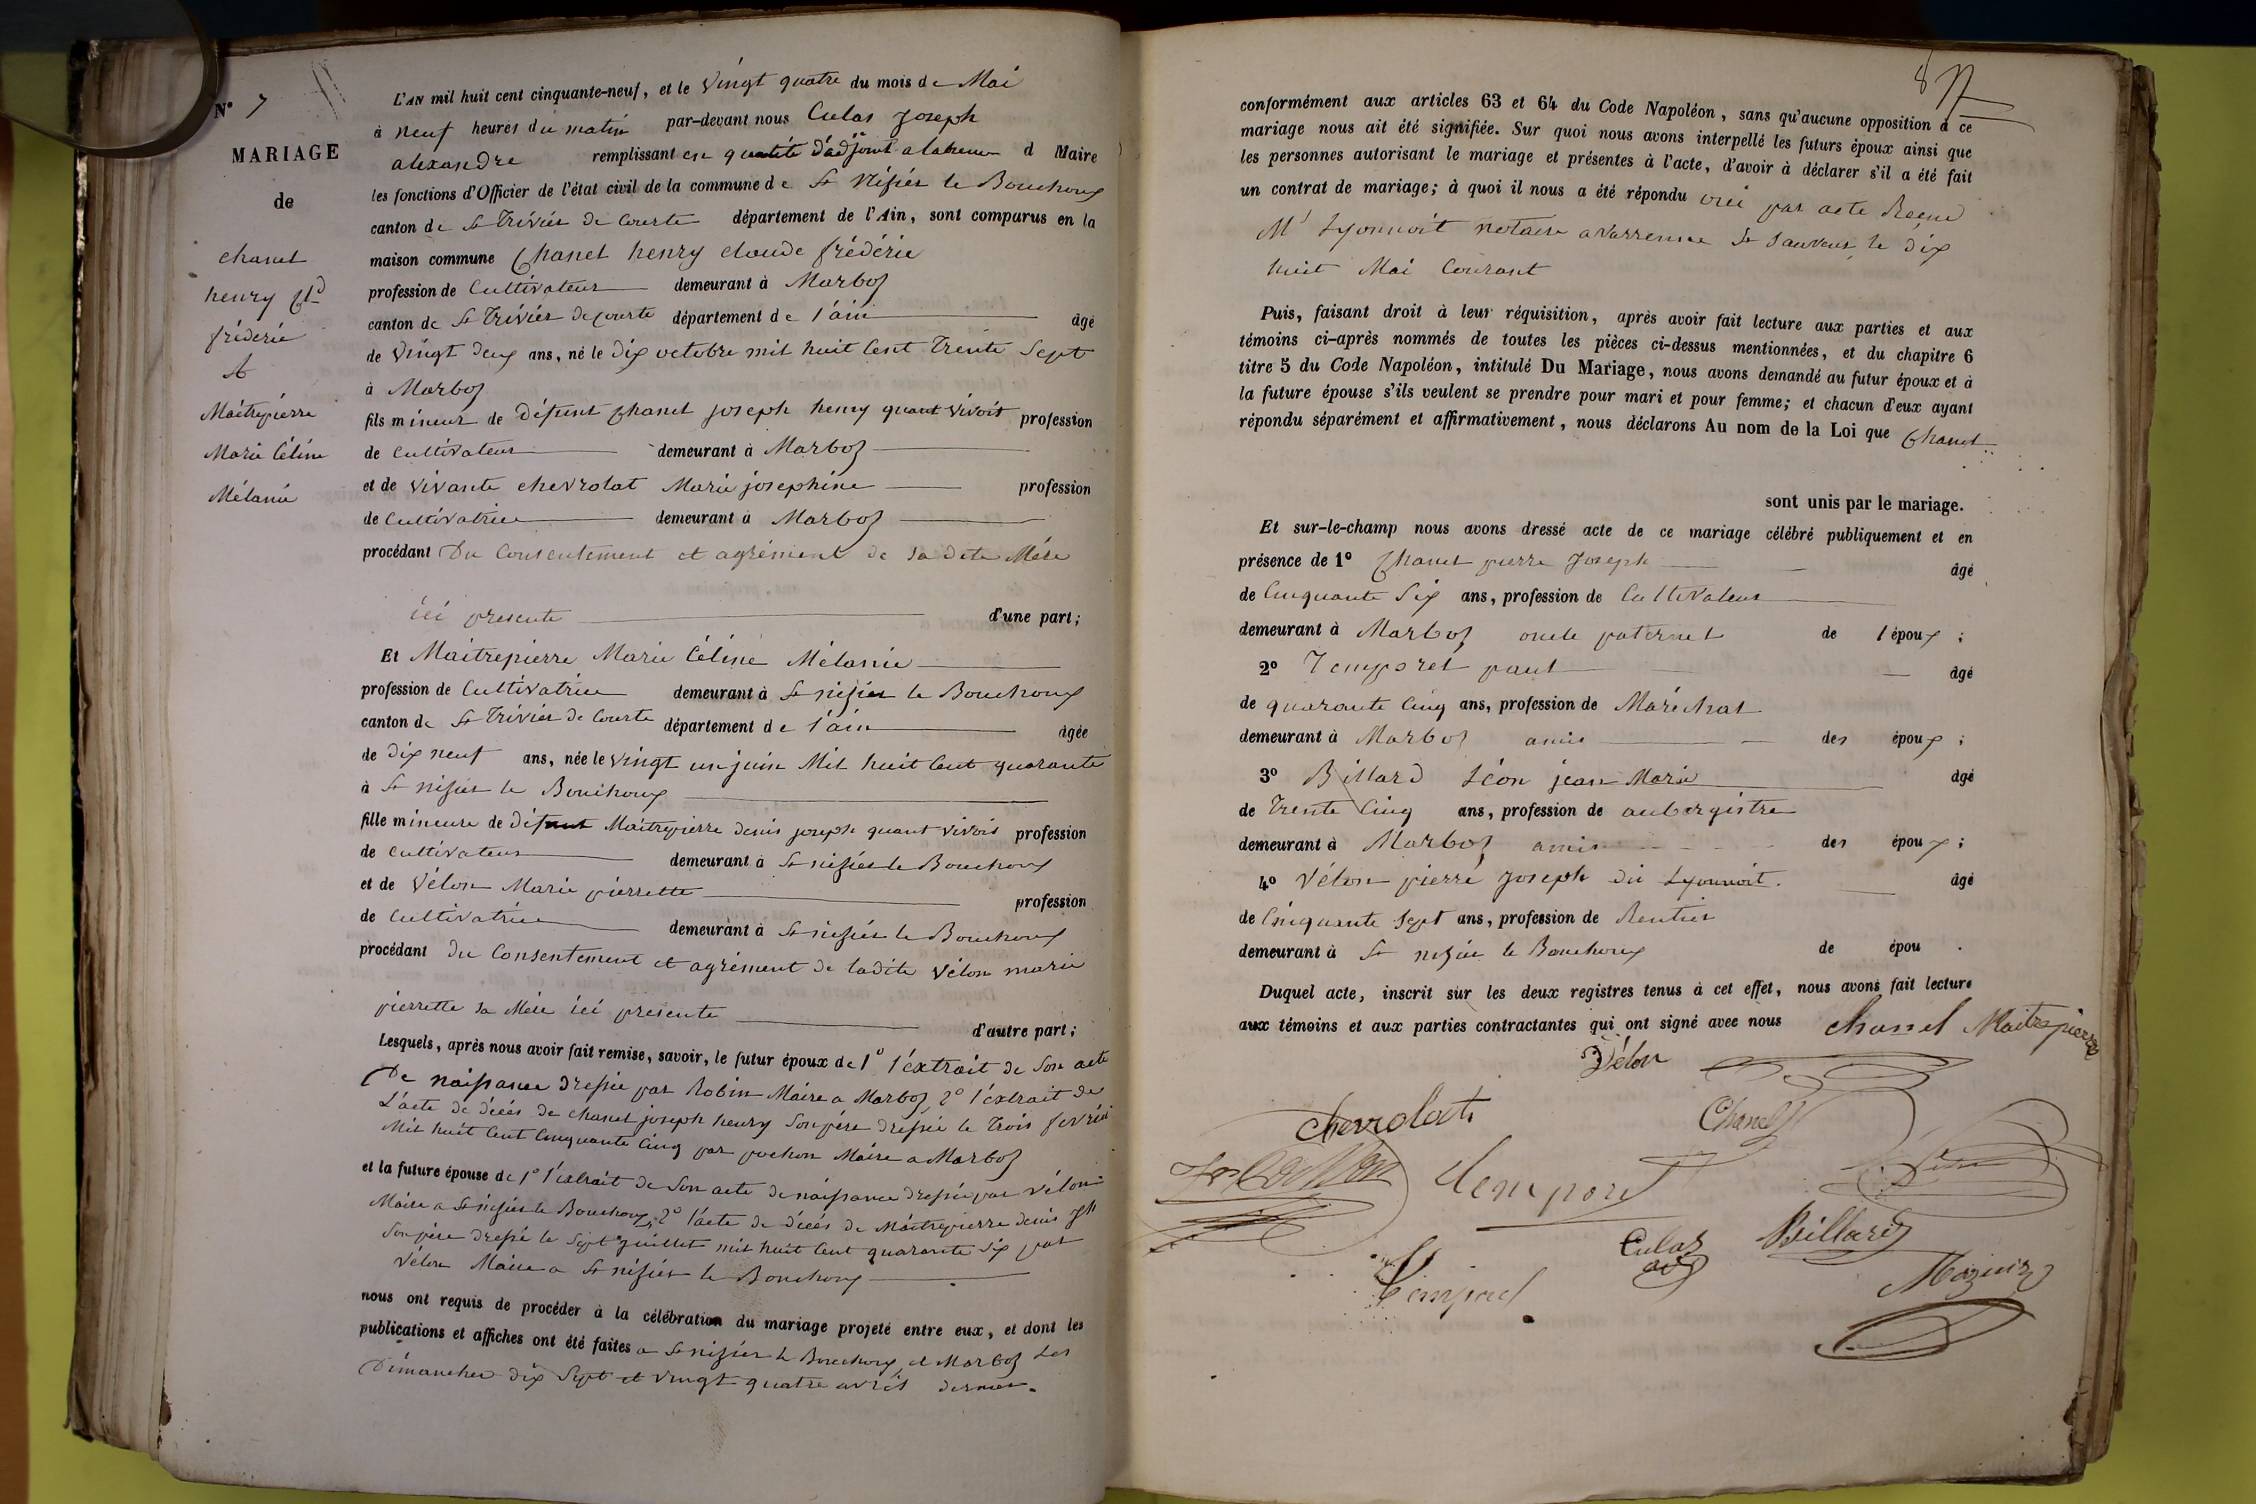 N° 7
MARIAGE
de
chanel
henry cld
fréderic
&
Maitrepierre
Marie Céline
Mélanie
L'AN mil huit cent cinquante-neuf, et le vingt quatre du mois de Mai
à neuf heures du matin par-devant nous Culas Joseph
alexandre remplissant en qualité d'adjoint d Maire
les fonctions d'Officier de l'état civil de la commune de St Nisiér le Bouchoux
canton de St Triviér de Courte département de l'Ain, sont comparus en la
maison commune Chanel henry claude fréderic
profession de Cultivateur demeurant à Marboz
canton de St Triviér de courte département de l'ain âgé
de vingt deux ans, né le dix octobre mil huit Cent Trente Sept
à Marboz
fils mineur de défunt Chanel joseph henry quant vivoit profession
de Cultivateur demeurant à Marboz
et de vivante chevrolat Marie josephine profession
de Cultivatrice demeurant à Marboz
procédant Du Consentement et agrément de sa dite Mére
ici presente d'une part;
Et Maitrepierre Marie Céline Mélanie
profession de Cultivatrice demeurant à St nisiér le Bouchoux
canton de St Triviér de Courte département de l'ain âgée
de dix neuf ans, née le vingt un juin Mil huit Cent quarante
à St nisiér le Bouchoux
fille mineure de défunt Maitrepierre denis joseph quant vivois profession
de cultivateur demeurant à St nisiér le Bouchoux
et de Vélon Marie pierrette profession
de Cultivatrice demeurant à St nisiér le Bouchoux
procédant du Consentement et agrément de ladite Vélon marie
pierrette sa Mére ici presente d'autre part;
Lesquels, après nous avoir fait remise, savoir, le futur époux de 1° l'éxtrait de son acte
De naissance dressée par Robin Maire a Marboz 2° l'éxtrait de
L'acte de décés de chanel joseph henry son pére dressée le Trois fevrié
Mil huit Cent Cinquante Cinq par pochon Maire a Marboz
et la future épouse de 1° l'éxtrait de son acte de naissance dressée par vélon
Maire a St nisiér le Bouchoux, 2° l'acte de décés de Maitrepierre denis Jph
son pére dressé le Sept juillet mil huit Cent quarante six par
Vélon Maire a St nisiér le Bouchoux
nous ont requis de procéder à la célébration du mariage projeté entre eux, et dont les
publications et affiches ont été faites a St nisiér le Bouchoux et Marboz les
Dimanches dix Sept et vingt quatre avril dernier.
conformément aux articles 63 et 64 du Code Napoléon, sans qu'aucune opposition à ce
mariage nous ait été signifiée. Sur quoi nous avons interpellé les futurs époux ainsi que
les personnes autorisant le mariage et présentes à l'acte, d'avoir à déclarer s'il a été fait
un contrat de mariage; à quoi il nous a été répondu oui par acte Reçue
Mr Lyonnoit notaire a varrenne St Sauveur, le dix
huit Mai Courant
Puis, faisant droit à leur réquisition, après avoir fait lecture aux parties et aux
témoins ci-après nommés de toutes les pièces ci-dessus mentionnées, et du chapitre 6
titre 5 du Code Napoléon, intitulé Du Mariage, nous avons demandé au futur époux et à
la future épouse s'ils veulent se prendre pour mari et pour femme; et chacun d'eux ayant
répondu séparément et affirmativement, nous déclarons Au nom de la Loi que Chanel
sont unis par le mariage.
Et sur-le-champ nous avons dressé acte de ce mariage célébré publiquement et en
présence de 1° Chanel pierre Joseph âgé
de Cinquante Six ans, profession de Cultivateur
demeurant à Marboz oncle paternel de l'époux;
2° Temporel paul âgé
de quarante Cinq ans, profession de Maréchal
demeurant à Marboz amis des époux;
3° Billard Léon jean Marie âgé
de Trente Cinq ans, profession de aubergistre
demeurant à Marboz amis des époux;
4° Vélon pierre Joseph di Lyonnoit. âgé
de Cinquante Sept ans, profession de Rentier
demeurant à St nisiér le Bouchoux de épou .
Duquel acte, inscrit sur les deux registres tenus à cet effet, nous avons fait lecture
aux témoins et aux parties contractantes qui ont signé avec nous chanel Maitrepierre
Vélon
Chevrolat Chanel
Temporel
Culas Billard
adj